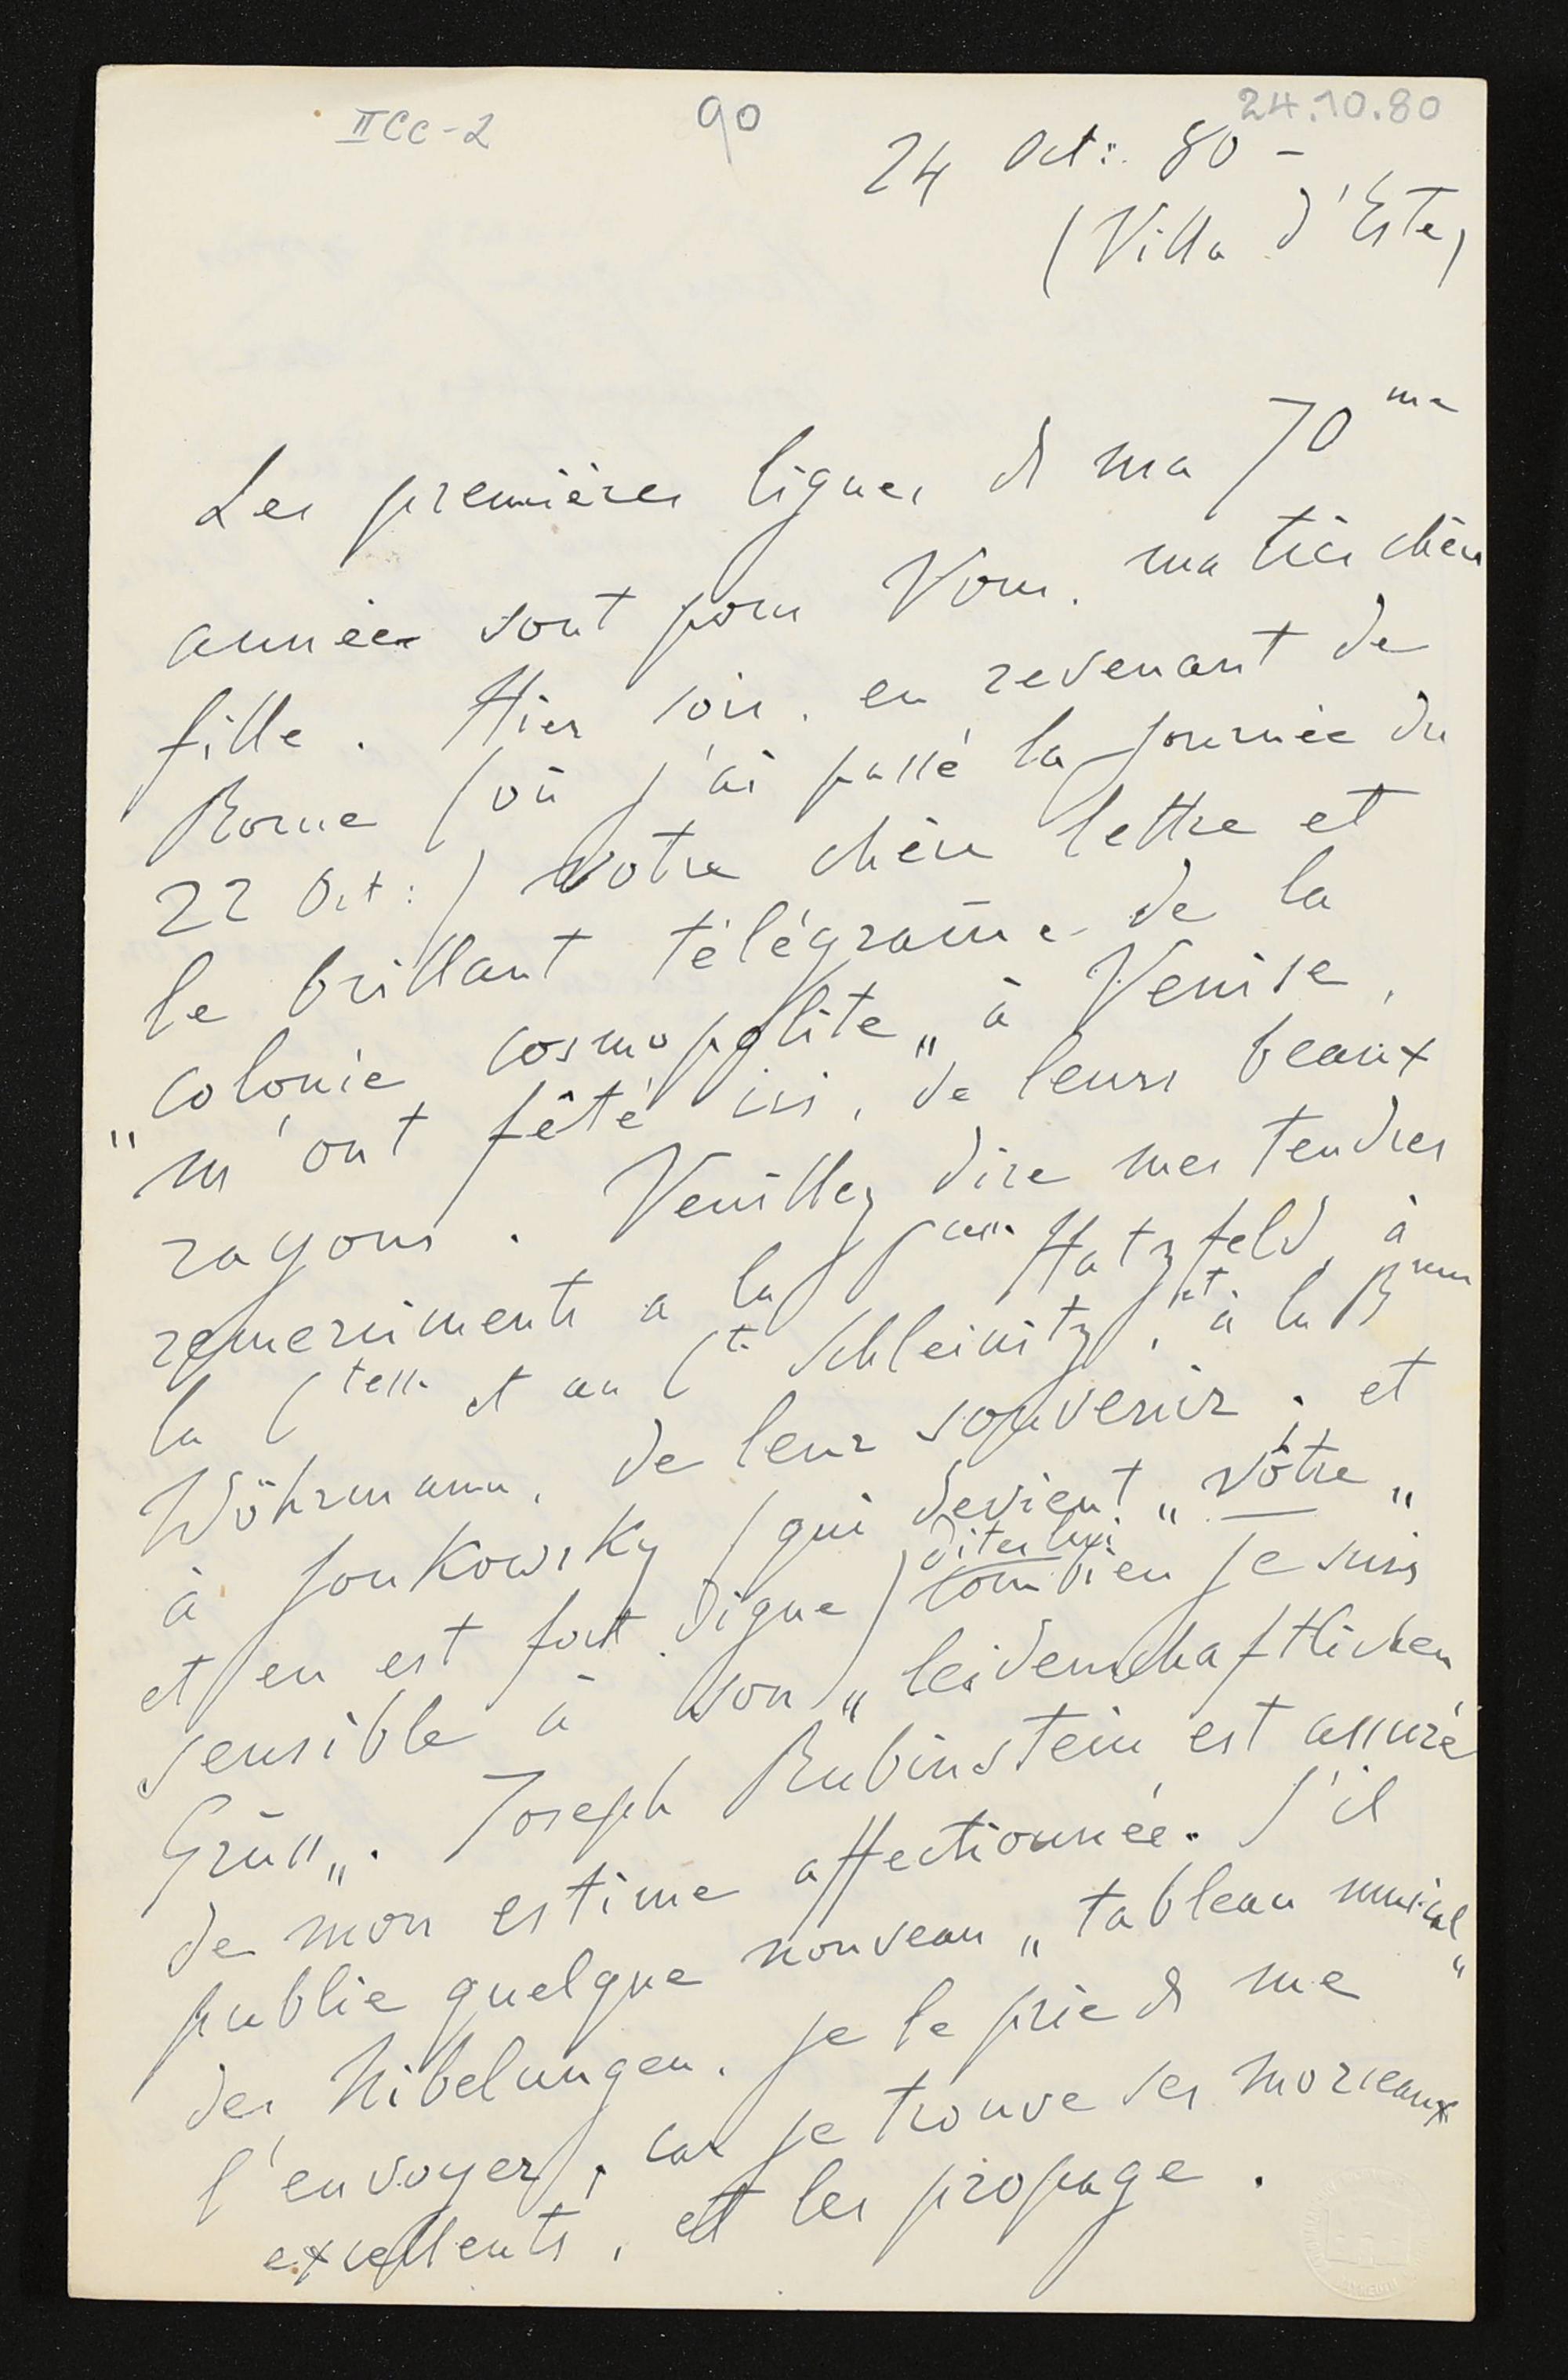 II Cc-2
90
24.10.80
24 Oct: 80 -
(Villa d'Este)
Les premières lignes de ma 70me
année sont pour Vous, ma très chère
fille. Hier soir, en revenant de
Rome (où j'ai passé la journée du
22 Oct:) votre chère lettre et
le brillant télégram̄e de la
"colonie cosmopolite„ à Venise,
m'ont fêté ici, de leurs beaux
rayons. Veuillez dire mes tendres
remerciments a la Pcesse Hatzfeld, à
la Ctesse et au Cte Schleinitz, et à la Bnne
Wöhrmann, de leur souvenir; et
à Joukowsky (qui devient „vôtre„
et en est fort digne) dites lui combien je suis
sensible à son „leidenschaftlichen
Grūss„. Joseph Rubinstein est assuré
de mon estime affectionnée. S'il
publie quelque nouveau „tableau musical"
des Nibelungen, je le prie de me
l'envoyer, car je trouve ses morceaux
excellents, et les propage.